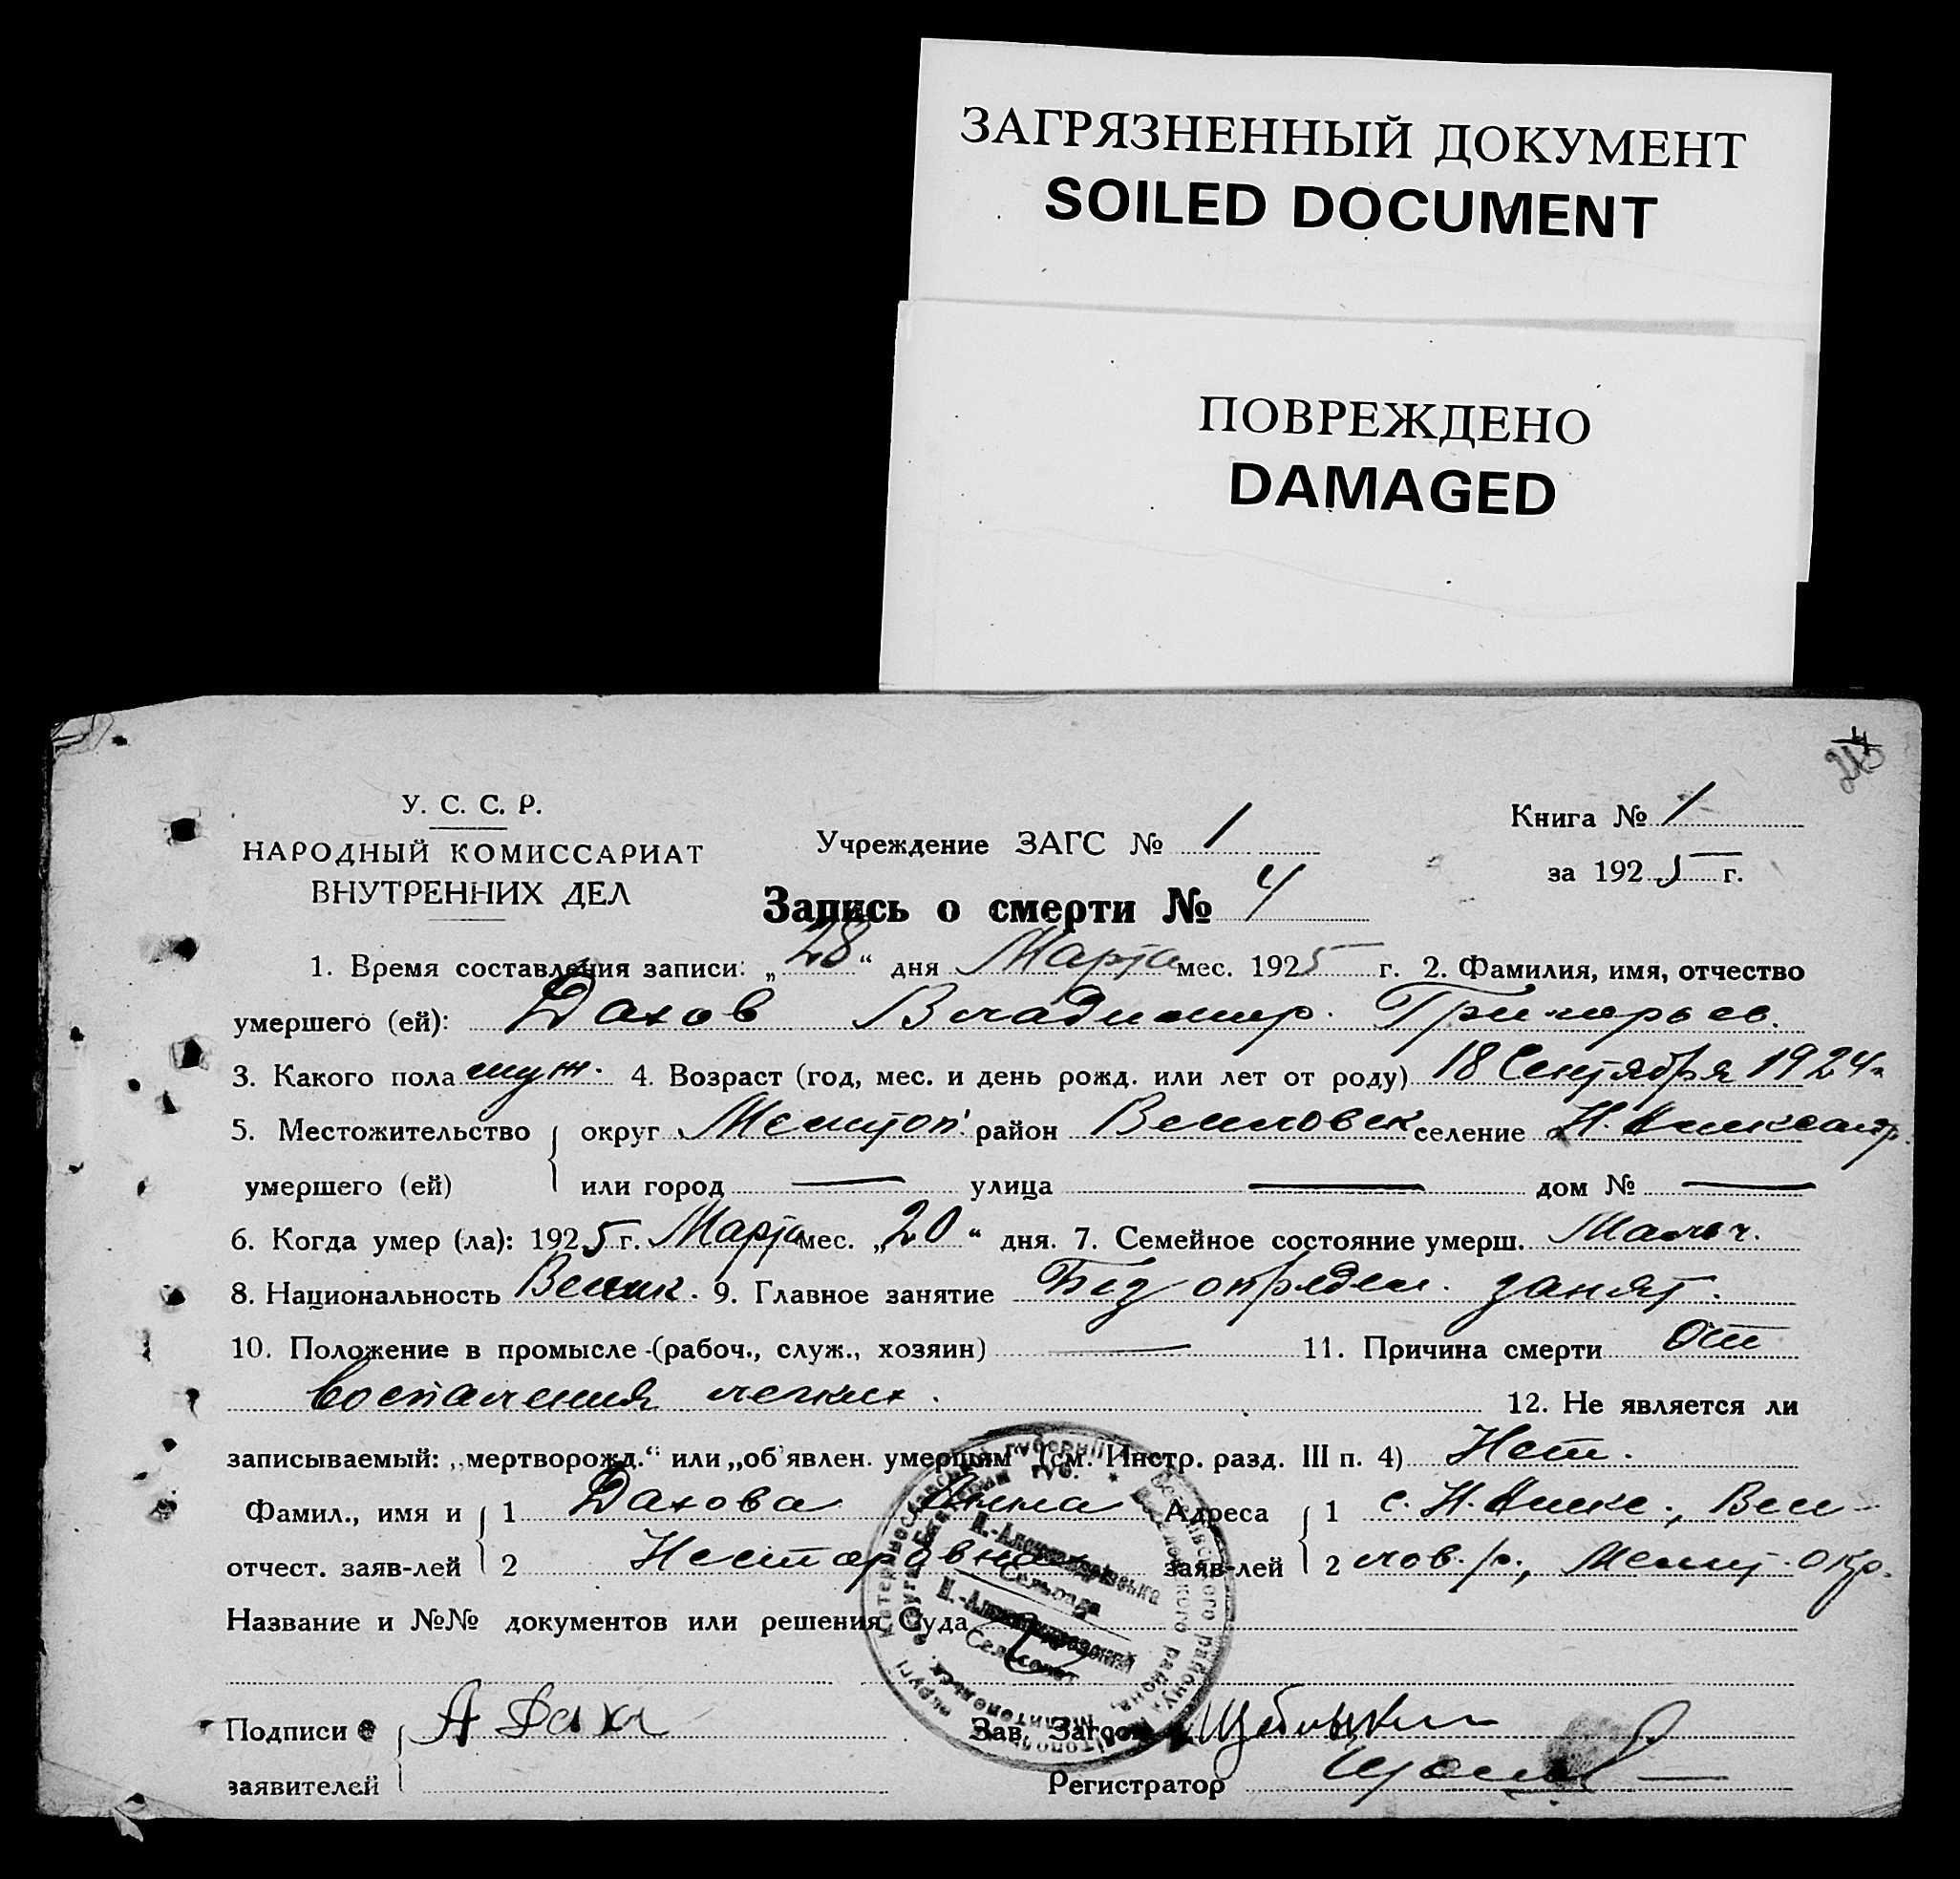 ЗАГРЯЗНЕННЫЙ ДОКУМЕНТ
SOILED DOCUMENT
ПОВРЕЖДЕНО
DAMAGED
У. С. С. Р.
НАРОДНЫЙ КОМИССАРИАТ
ВНУТРЕННИХ ДЕЛ
Учреждение ЗАГС № 1
Книга № 1
за 1925 г.
Запись о смерти № 4
1. Время составления записи: „28“ дня Марта мес. 1925 г. 2. Фамилия, имя, отчество
умершего (ей): Дахов Владимир. Григорьев.
3. Какого пола муж. 4. Возраст (год, мес. и день рожд. или лет от роду) 18 Сентября 1924
5. Местожительство округ Мелитоп. район Веселовск селение Н. Александр.
умершего (ей) или город — улица — дом № —
6. Когда умер (ла): 1925 г. Марта мес. „20“ дня. 7. Семейное состояние умерш. Мальч.
8. Национальность Велик. 9. Главное занятие Без определ. занят.
10. Положение в промысле-(рабоч., служ., хозяин) — 11. Причина смерти От
воспаления легких.
12. Не является ли
записываемый: „мертворожд.“ или „об'явлен. умершим“ (см. Инстр. разд. III п. 4) Нет.
Фамил., имя и 1 Дахова Анна Адреса 1 с. Н. Алекс., Весе-
отчест. заяв-лей 2 Несторовна заяв-лей 2 лов. р., Мелит. окр.
Название и №№ документов или решения Суда
Н.-Александрівська
Сельрада
Н.-Александровский
Сельсовет
Подписи А Даха Зав. Загсом
заявителей Регистратор